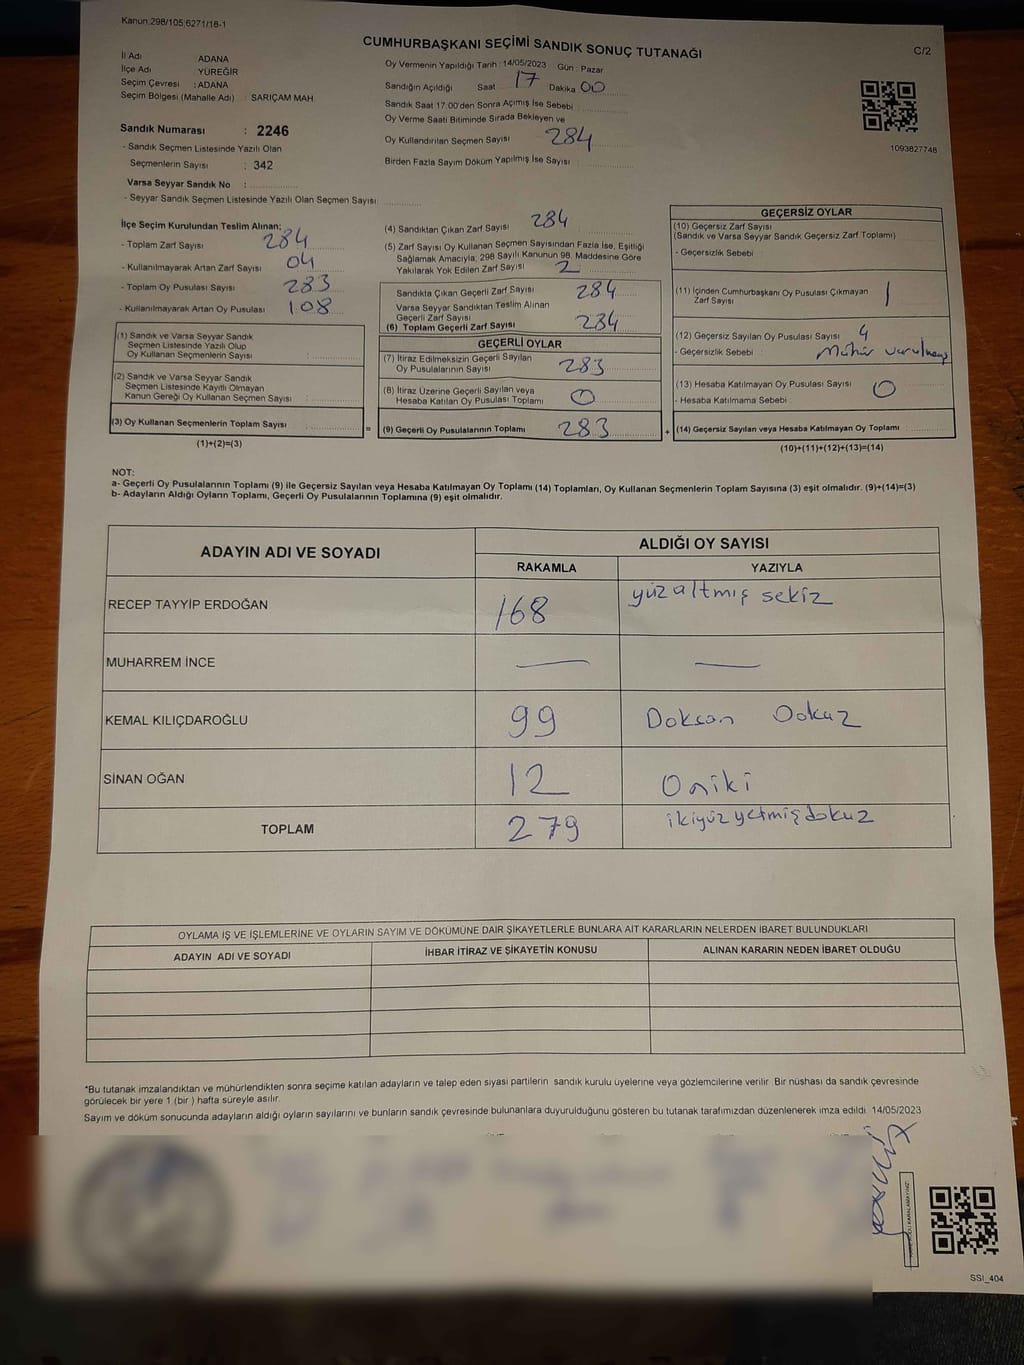 Kanun:298/105;6271/18-1
CUMHURBAŞKANI SEÇİMİ SANDIK SONUÇ TUTANAĞI
C/2
İl Adı ADANA
İlçe Adı YÜREĞİR
Seçim Çevresi : ADANA
Seçim Bölgesi (Mahalle Adı) : SARIÇAM MAH
Sandık Numarası : 2246
- Sandık Seçmen Listesinde Yazılı Olan
Seçmenlerin Sayısı : 342
Varsa Seyyar Sandık No :
- Seyyar Sandık Seçmen Listesinde Yazılı Olan Seçmen Sayısı
Oy Vermenin Yapıldığı Tarih : 14/05/2023 Gün : Pazar
Sandığın Açıldığı Saat 17 Dakika 00
Sandık Saat 17:00'den Sonra Açımış İse Sebebi
Oy Verme Saati Bitiminde Sırada Bekleyen ve
Oy Kullandırılan Seçmen Sayısı 284
Birden Fazla Sayım Döküm Yapılmış İse Sayısı :
1093827748
İlçe Seçim Kurulundan Teslim Alınan:
- Toplam Zarf Sayısı 284
- Kullanılmayarak Artan Zarf Sayısı 04
- Toplam Oy Pusulası Sayısı 283
- Kullanılmayarak Artan Oy Pusulası 108
(1) Sandık ve Varsa Seyyar Sandık
Seçmen Listesinde Yazılı Olup
Oy Kullanan Seçmenlerin Sayısı :
(2) Sandık ve Varsa Seyyar Sandık
Seçmen Listesinde Kayıtlı Olmayan
Kanun Gereği Oy Kullanan Seçmen Sayısı :
(3) Oy Kullanan Seçmenlerin Toplam Sayısı =
(1)+(2)=(3)
(4) Sandıktan Çıkan Zarf Sayısı 284
(5) Zarf Sayısı Oy Kullanan Seçmen Sayısından Fazla İse, Eşitliği
Sağlamak Amacıyla; 298 Sayılı Kanunun 98. Maddesine Göre
Yakılarak Yok Edilen Zarf Sayısı 2
Sandıkta Çıkan Geçerli Zarf Sayısı 284
Varsa Seyyar Sandıktan Teslim Alınan
Geçerli Zarf Sayısı
(6) Toplam Geçerli Zarf Sayısı 284
GEÇERLİ OYLAR
(7) İtiraz Edilmeksizin Geçerli Sayılan
Oy Pusulalarının Sayısı 283
(8) İtiraz Üzerine Geçerli Sayılan veya
Hesaba Katılan Oy Pusulası Toplamı 0
(9) Geçerli Oy Pusulalarının Toplamı 283 +
GEÇERSİZ OYLAR
(10) Geçersiz Zarf Sayısı
(Sandık ve Varsa Seyyar Sandık Geçersiz Zarf Toplamı)
- Geçersizlik Sebebi :
(11) İçinden Cumhurbaşkanı Oy Pusulası Çıkmayan 1
Zarf Sayısı
(12) Geçersiz Sayılan Oy Pusulası Sayısı 4
- Geçersizlik Sebebi : Mühür
(13) Hesaba Katılmayan Oy Pusulası Sayısı 0
- Hesaba Katılmama Sebebi :
(14) Geçersiz Sayılan veya Hesaba Katılmayan Oy Toplamı
(10)+(11)+(12)+(13)=(14)
NOT:
a- Geçerli Oy Pusulalarının Toplamı (9) ile Geçersiz Sayılan veya Hesaba Katılmayan Oy Toplamı (14) Toplamları, Oy Kullanan Seçmenlerin Toplam Sayısına (3) eşit olmalıdır. (9)+(14)=(3)
b- Adayların Aldığı Oyların Toplamı, Geçerli Oy Pusulalarının Toplamına (9) eşit olmalıdır.
ADAYIN ADI VE SOYADI
ALDIĞI OY SAYISI
RAKAMLA YAZIYLA
RECEP TAYYİP ERDOĞAN 168 yüzaltmış sekiz
MUHARREM İNCE — —
KEMAL KILIÇDAROĞLU 99 Doksan Dokuz
SİNAN OĞAN 12 Oniki
TOPLAM 279 ikiyüzyetmişdokuz
OYLAMA İŞ VE İŞLEMLERİNE VE OYLARIN SAYIM VE DÖKÜMÜNE DAİR ŞİKAYETLERLE BUNLARA AİT KARARLARIN NELERDEN İBARET BULUNDUKLARI
ADAYIN ADI VE SOYADI İHBAR İTİRAZ VE ŞİKAYETİN KONUSU ALINAN KARARIN NEDEN İBARET OLDUĞU
*Bu tutanak imzalandıktan ve mühürlendikten sonra seçime katılan adayların ve talep eden siyasi partilerin sandık kurulu üyelerine veya gözlemcilerine verilir. Bir nüshası da sandık çevresinde
görülecek bir yere 1 (bir) hafta süreyle asılır.
Sayım ve döküm sonucunda adayların aldığı oyların sayılarını ve bunların sandık çevresinde bulunanlara duyurulduğunu gösteren bu tutanak tarafımızdan düzenlenerek imza edildi. 14/05/2023
SSI_404